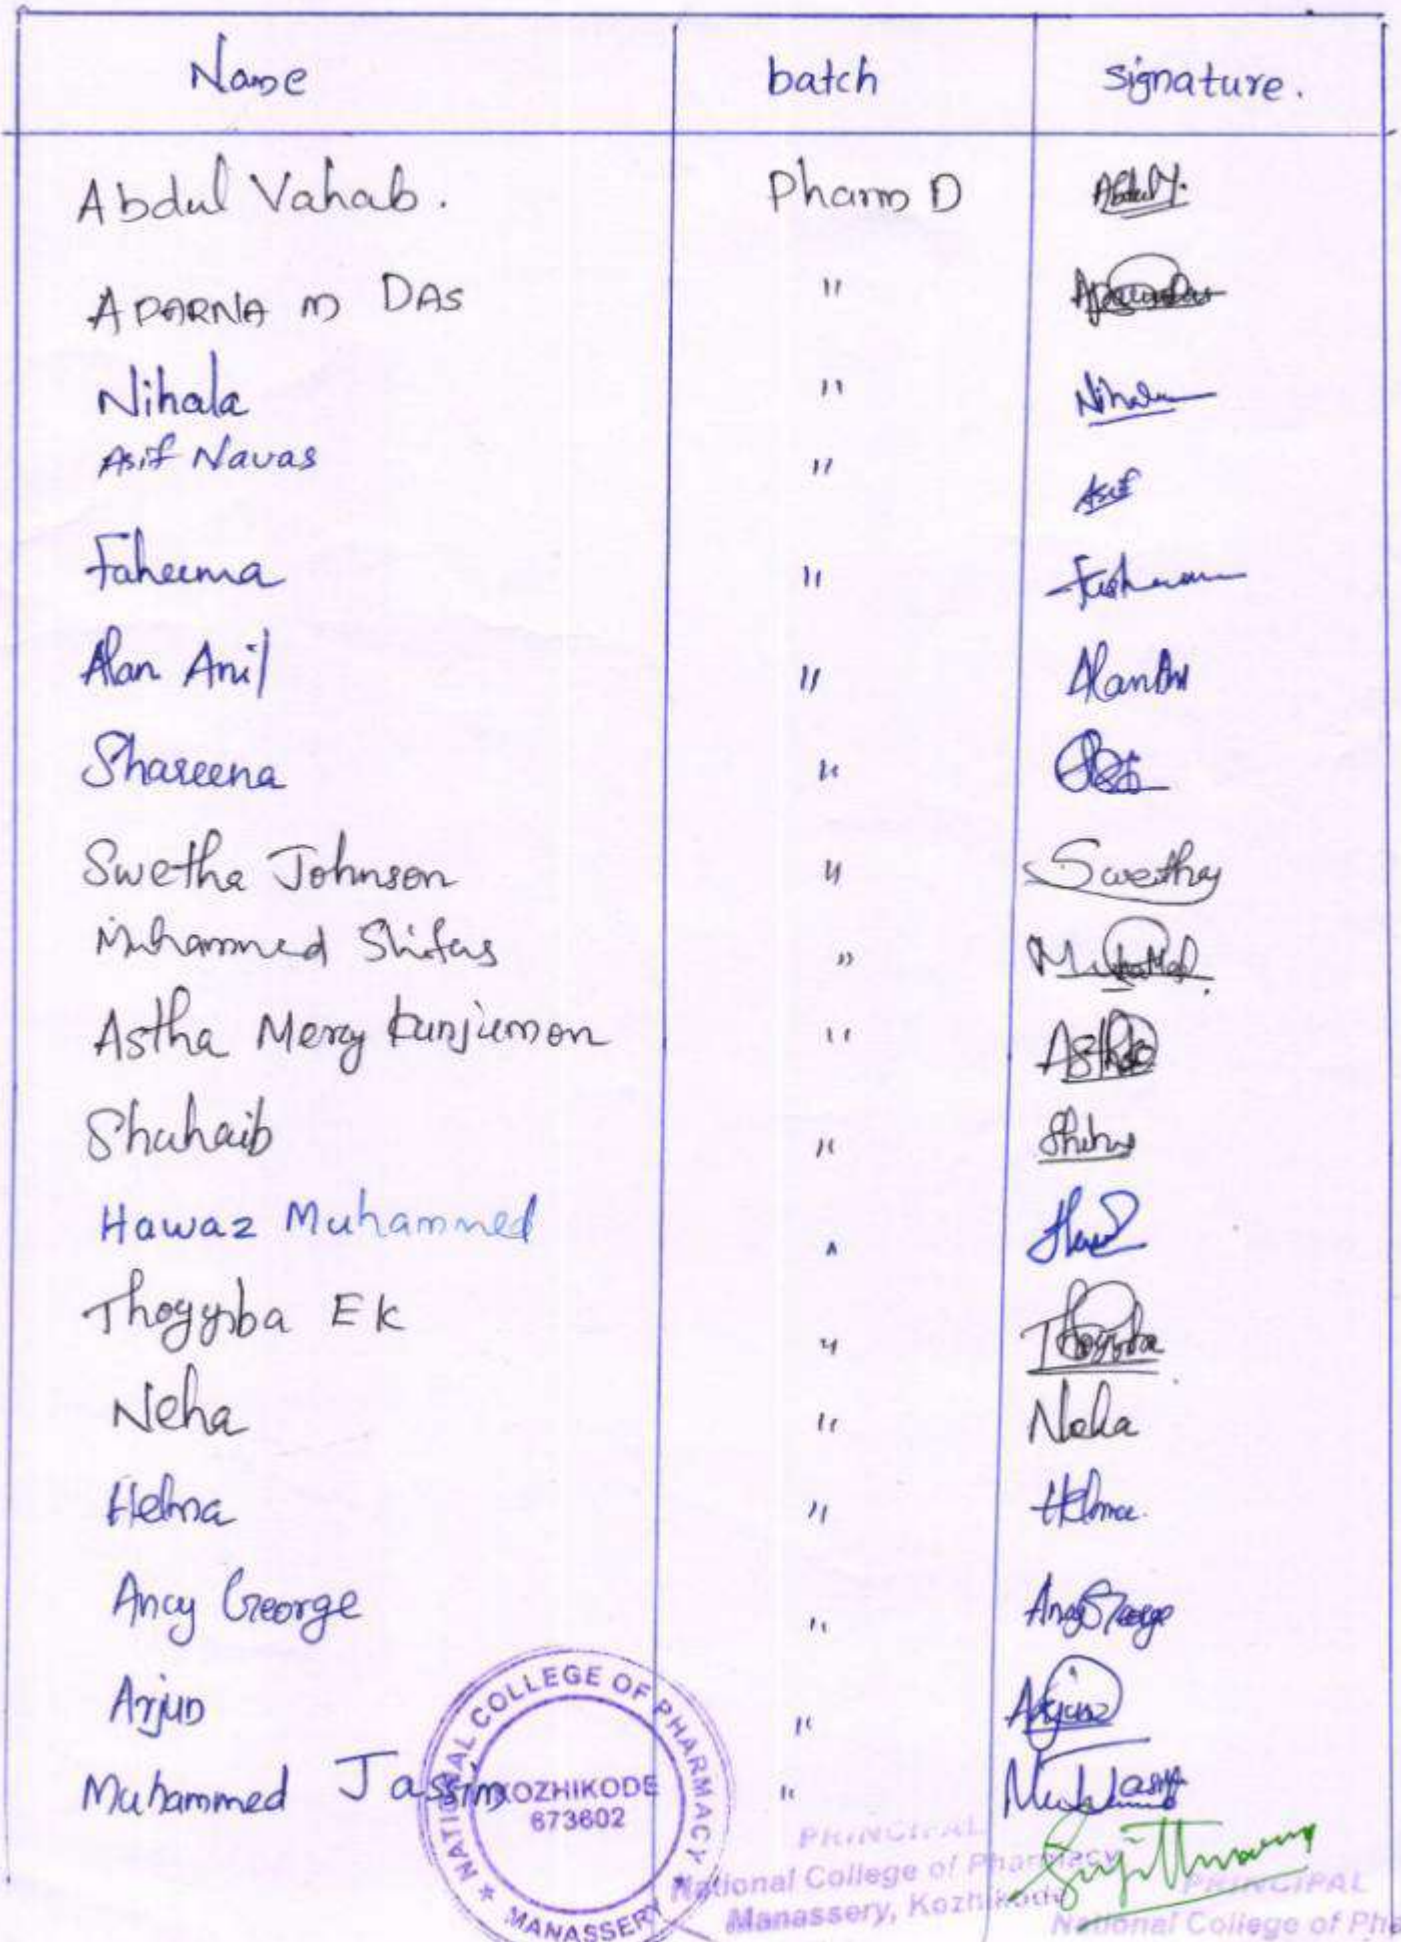 Name batch signature.
Abdul Vahab. Pharm D Abdul V.
APARNA M DAS "
Nihala " Nihala
Asif Navas " Asif
Faheema "
Alan Anil " Alan Anil
Shareena "
Swetha Johnson " Swetha
Muhammed Shifas "
Astha Mercy Kunjumon " Astha
Shuhaib "
Hawaz Muhammed "
Thoyyiba EK " Thoyyiba
Neha " Neha
Helna " Helna
Ancy George " Ancy George
Arjun " Arjun
Muhammed Jassim "
NATIONAL COLLEGE OF PHARMACY
KOZHIKODE
673602
MANASSERY
PRINCIPAL
National College of Pharmacy
Manassery, Kozhikode
PRINCIPAL
National College of Pha